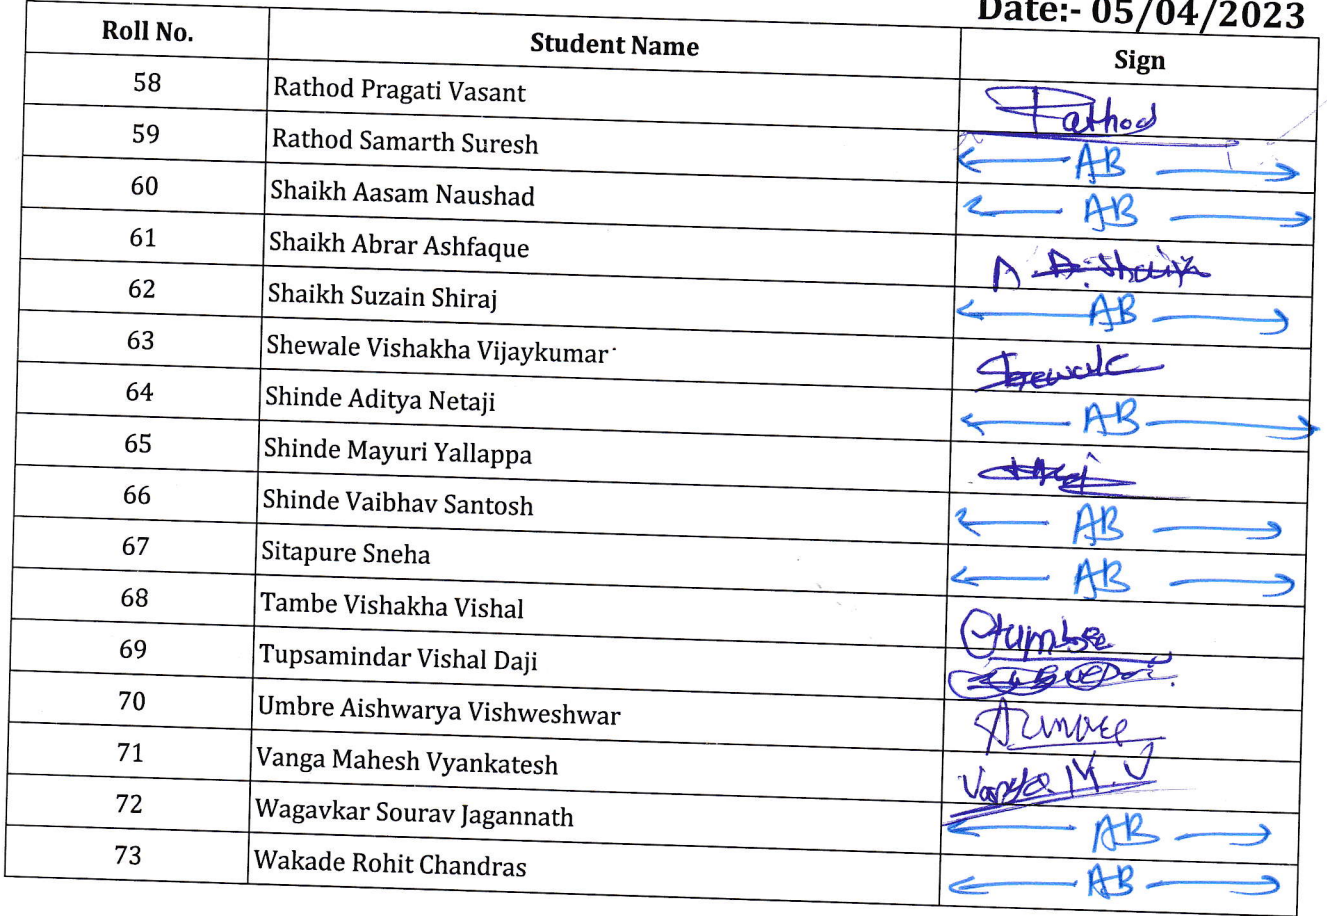 Date:- 05/04/2023
Roll No. Student Name Sign
58 Rathod Pragati Vasant Rathod
59 Rathod Samarth Suresh AB
60 Shaikh Aasam Naushad AB
61 Shaikh Abrar Ashfaque A. A. Shaikh
62 Shaikh Suzain Shiraj AB
63 Shewale Vishakha Vijaykumar Shewale
64 Shinde Aditya Netaji AB
65 Shinde Mayuri Yallappa
66 Shinde Vaibhav Santosh AB
67 Sitapure Sneha AB
68 Tambe Vishakha Vishal
69 Tupsamindar Vishal Daji
70 Umbre Aishwarya Vishweshwar
71 Vanga Mahesh Vyankatesh Vanga M. V
72 Wagavkar Sourav Jagannath AB
73 Wakade Rohit Chandras AB